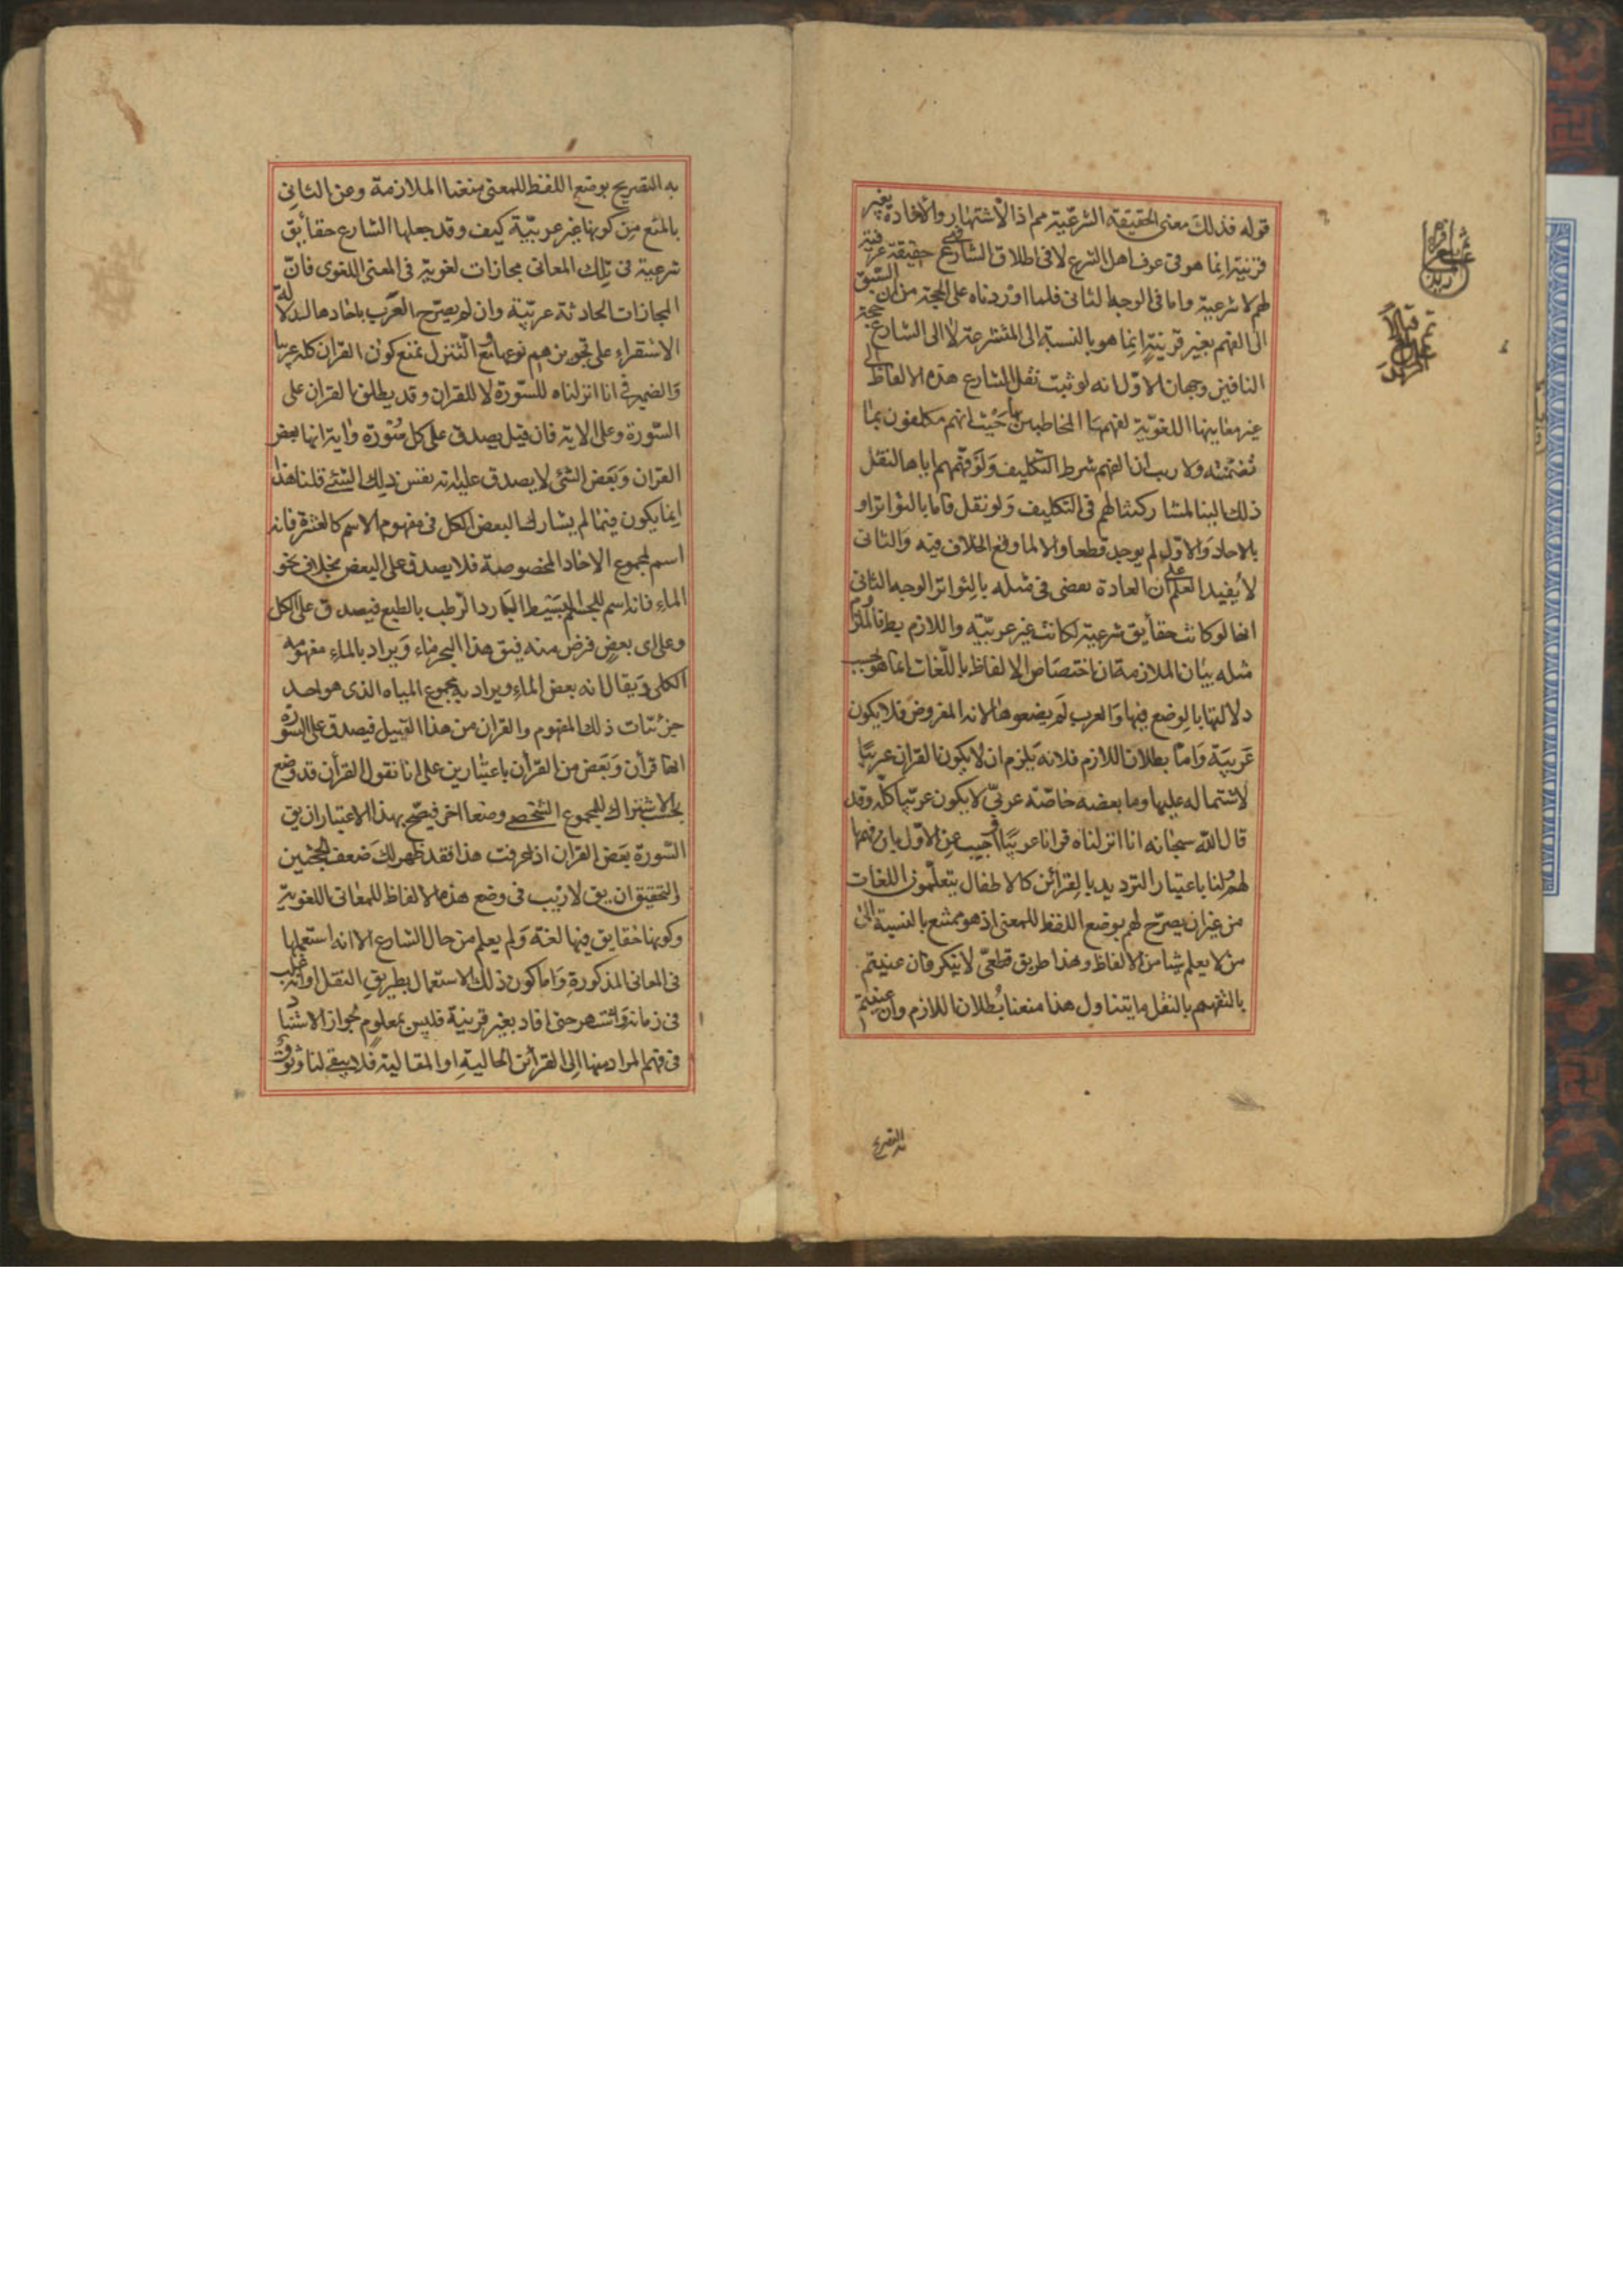 قوله فذلك معنى الحقيقة الشرعية مم اذ الاشتهار والافادة بغير
قرينة انما هو فى عرف اهل الشرع لا فى اطلاق الشارع فهى حقيقة عرفية
لهم لا شرعية واما فى الوجه الثانى فلما اوردناه على الحجة من ان السبق
الى الفهم بغير قرينة انما هو بالنسبة الى المتشرعة لا الى الشارع حجة
النافين وجهان الاول انه لو ثبت نقل الشارع هذه الالفاظ الى
غير معانيها اللغوية لفهمها المخاطبين بها حيث انهم مكلفون بما
تضمنته ولا ريب ان الفهم شرط التكليف ولو فهمهم اياها لنقل
ذلك الينا لمشاركتنا لهم فى التكليف ولو نقل فاما بالتواتر او
بالاحاد والاول لم يوجد قطعا والا لما وقع الخلاف فيه والثانى
لا يفيد العلم على ان العادة تقضى فى مثله بالتواتر الوجه الثانى
انها لو كانت حقايق شرعية لكانت غير عربية واللازم بط فالملزوم
مثله بيان الملازمة ان اختصاص الالفاظ باللغات انما هو بحسب
دلالتها بالوضع فيها والعرب لم يضعوها لانه المفروض فلا يكون
عربية واما بطلان اللازم فلانه يلزم ان لا يكون القران عربيا
لاشتماله عليها وما بعضه خاصة عربى لا يكون عربيا كله وقد
قال الله سبحانه انا انزلناه قرانا عربيا اجيب عن الاول بان فهمها
لهم ولنا باعتبار الترديد بالقرائن كالاطفال يتعلمون اللغات
من غير ان يصرح لهم بوضع اللفظ للمعنى اذ هو ممتنع بالنسبة الى
من لا يعلم شيا من الالفاظ وهذا طريق قطعى لا ينكر فان عنيتم
بالتفهيم بالنقل ما يتناول هذا منعنا بطلان اللازم وان عنيتم
به التصريح
به التصريح بوضع اللفظ للمعنى منعنا الملازمة وعن الثانى
بالمنع من كونها غير عربية كيف وقد جعلها الشارع حقايق
شرعية فى تلك المعانى مجازات لغوية فى المعنى اللغوى فان
المجازات الحادثة عربية وان لم يصرح العرب باحادها لدلالة
الاستقراء على تجويزهم نوعها ومع التنزل نمنع كون القران كله عربيا
والضمير فى انا انزلناه للسورة لا للقران وقد يطلق القران على
السورة وعلى الاية فان قيل يصدق على كل سورة واية انها بعض
القران وبعض الشئ لا يصدق عليه انه نفس ذلك الشئ قلنا هذا
انما يكون فيما لم يشارك البعض الكل فى مفهوم الاسم كالعشرة فانه
اسم لمجموع الاحاد المخصوصة فلا يصدق على البعض بخلاف نحو
الماء فانه اسم للجسم البسيط البارد الرطب بالطبع فيصدق على الكل
وعلى اى بعض فرض منه فيق هذا البحر ماء ويراد بالماء مفهومه
الكلى ويقال انه بعض الماء ويراد به مجموع المياه الذى هو احد
جزئيات ذلك المفهوم والقران من هذا القبيل فيصدق على السورة
انها قرأن وبعض من القرأن باعتبارين على انا نقول القرأن قد وضع
بحسب الاشتراك للمجموع الشخصى وضعا اخر فيصح بهذا الاعتبار ان يق
السورة بعض القران اذا عرفت هذا فقد ظهر لك ضعف الحجتين
والتحقيق ان يق لا ريب فى وضع هذه الالفاظ للمعانى اللغوية
وكونها حقايق فيها لغة ولم يعلم من حال الشارع الا انه استعملها
فى المعانى المذكورة واما كون ذلك الاستعمال بطريق النقل او انه غلب
فى زمانه واشتهر حتى افاد بغير قرينة فليس بمعلوم لجواز الاستناد
فى فهم المراد منها الى القرأئن الحالية او المقالية فلا يبقى لنا وثوق